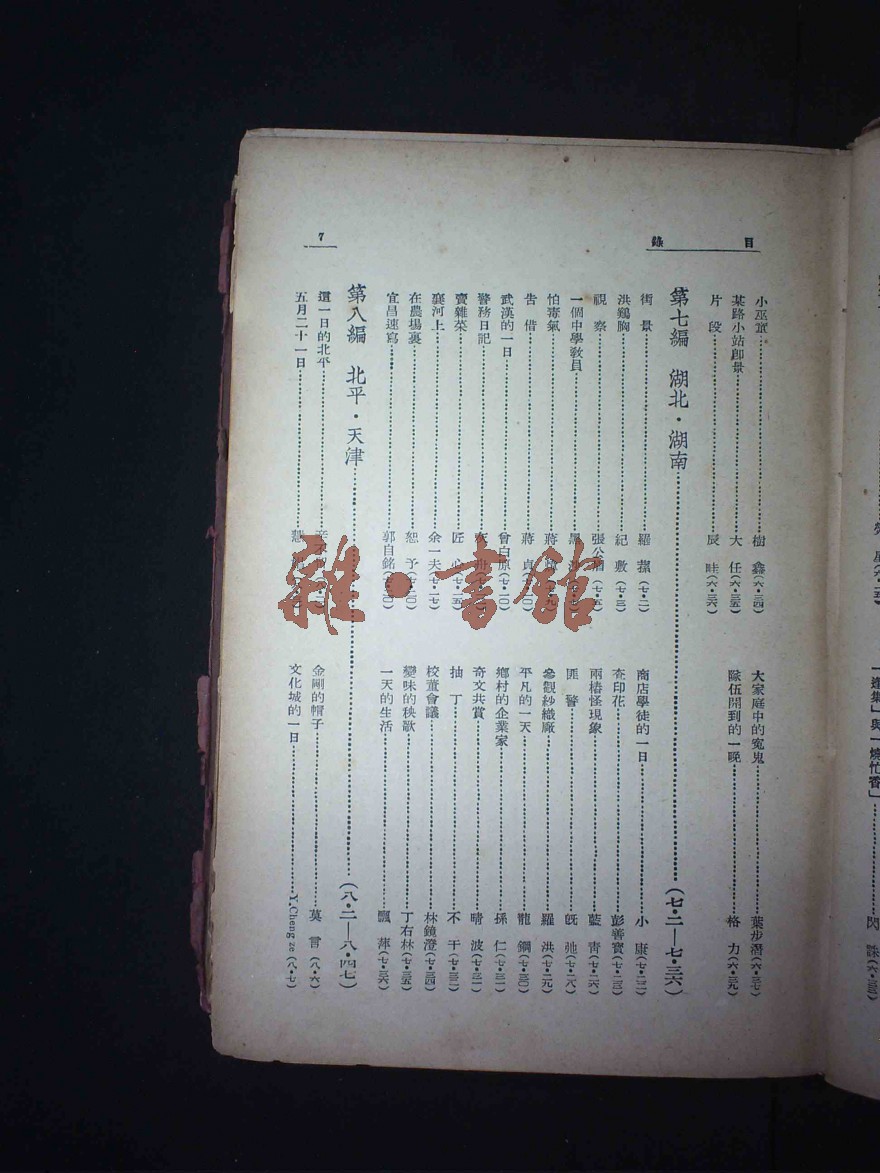 目錄
7
小巫蠱 樹鑫(六•三四)
某路小站卽景 大任(六•三五)
片段 辰畦(六•三六)
大家庭中的冤鬼 葉步潛(六•三七)
隊伍開到的一晚 格力(六•三九)
第七編 湖北•湖南 (七•二—七•三六)
街景 羅蕻(七•二)
洪鷄胸 紀敷(七•三)
視察 張公(七•五)
一個中學教員
怕毒氣 蔣
告借 蔣貞(七•一〇)
武漢的一日 曾白原(七•一〇)
警務日記
賣雜菜 匠心(七•一五)
襄河上 余一夫(七•一七)
在農場裏 恕予(七•二〇)
宜昌速寫 郭自銘(七•二〇)
商店學徒的一日 小康(七•二二)
查印花 彭善寶(七•二三)
兩樁怪現象 藍靑(七•二六)
匪警 旣弛(七•二八)
參觀紗織廠 羅洪(七•二九)
平凡的一天 龍鋼(七•三〇)
鄉村的企業家 孫仁(七•三一)
奇文共賞 晴波(七•三一)
抽丁 不干(七•三二)
校董會議 林鏡澄(七•三四)
變味的秧歌 丁右林(七•三五)
一天的生活 飄萍(七•三六)
第八編 北平•天津 (八•二—八•四七)
這一日的北平
五月二十一日
金剛的帽子 莫言(八•六)
文化城的一日 Y. Cheng ze (八•七)
「趕集」與「燒忙香」
閃
雜•書館